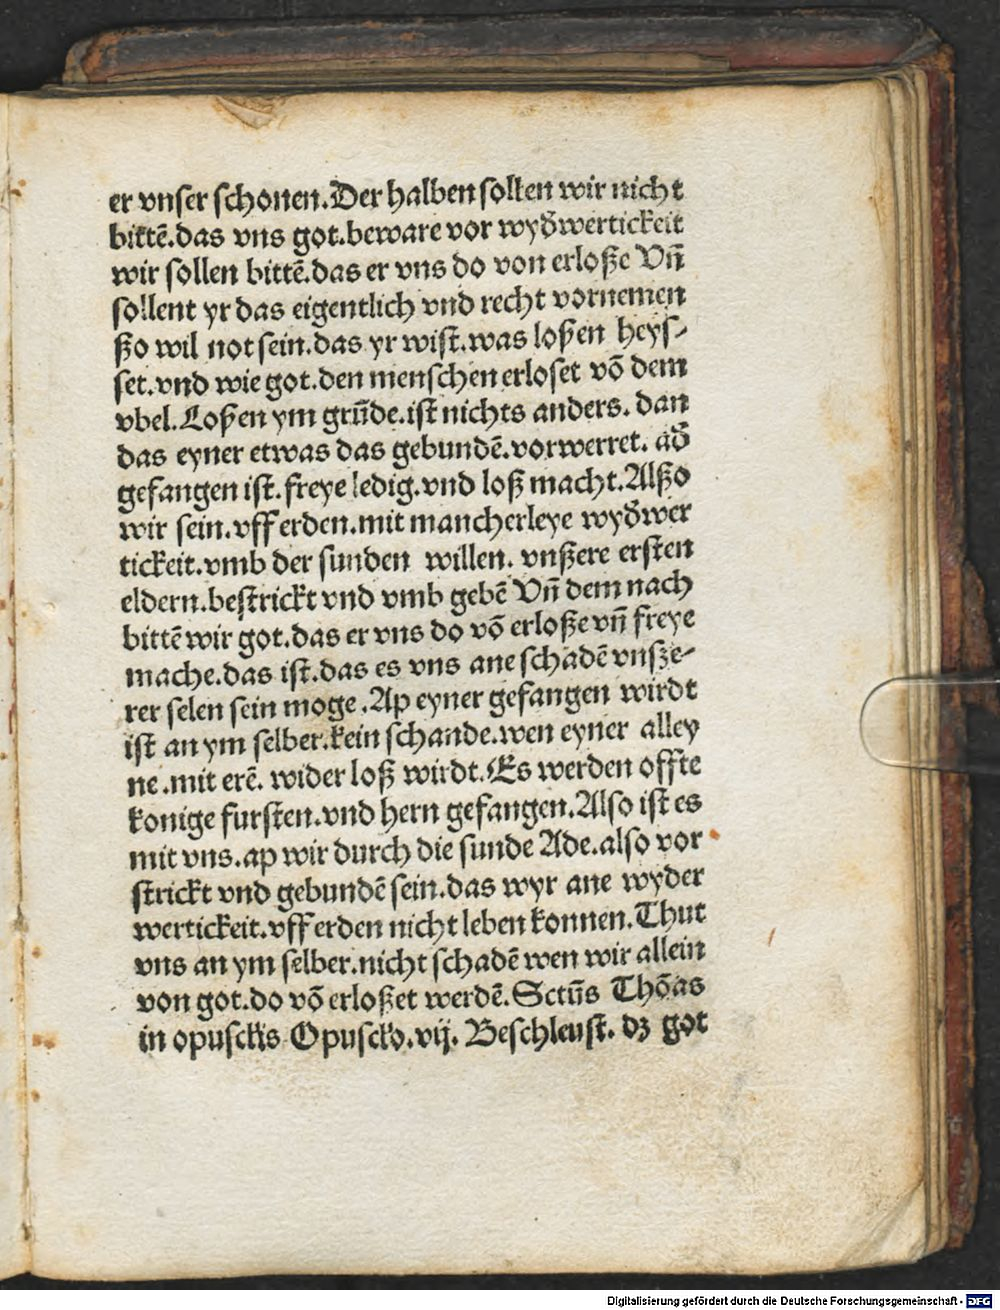 er vnser schonen.Der halben sollen wir nicht
bittē.das vns got.beware vor wyd̄wertickeit
wir sollen bittē.das er vns do von erloße Vn̄
sollent yr das eigentlich vnd recht vornemen
ßo wil not sein.das yr wist.was loßen heys⸗
set.vnd wie got.den menschen erloset vō dem
vbel.Loßen ym grūde.ist nichts anders.dan
das eyner etwas das gebundē.vorwerret. ad̄
gefangen ist.freye ledig.vnd loß macht.Alßo
wir sein.vff erden.mit mancherleye wyd̄wer
tickeit.vmb der sunden willen. vnßere ersten
eldern.bestrickt vnd vmb gebē Vn̄ dem nach
bittē wir got.das er vns do vō erloße vn̄ freye
mache.das ist.das es vns ane schadē vnsze⸗
rer selen sein moge.Ap eyner gefangen wirdt
ist an ym selber.kein schande.wen eyner alley
ne.mit erē. wider loß wirdt.Es werden offte
konige fursten.vnd hern gefangen.Also ist es
mit vns.ap wir durch die sunde Ade.also vor
strickt vnd gebundē sein.das wyr ane wyder
wertickeit.vff erden nicht leben konnen.Thut
vns an ym selber.nicht schadē wen wir allein
von got.do vō erloßet werdē.Sctūs Thōas
in opusckis Opuscko.vij. Beschleust. dꝫ got
Digitalisierung gefördert durch die Deutsche Forschungsgemeinschaft - DFG